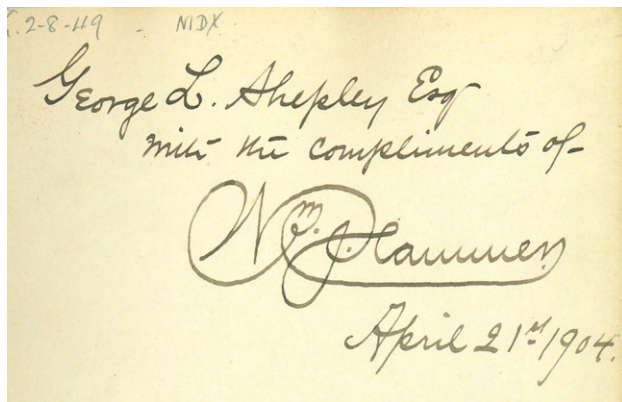 . 2-8-49 - NIDX
George L. Shepley Esq
with the compliments of
Wm. P.
April 21st 1904.